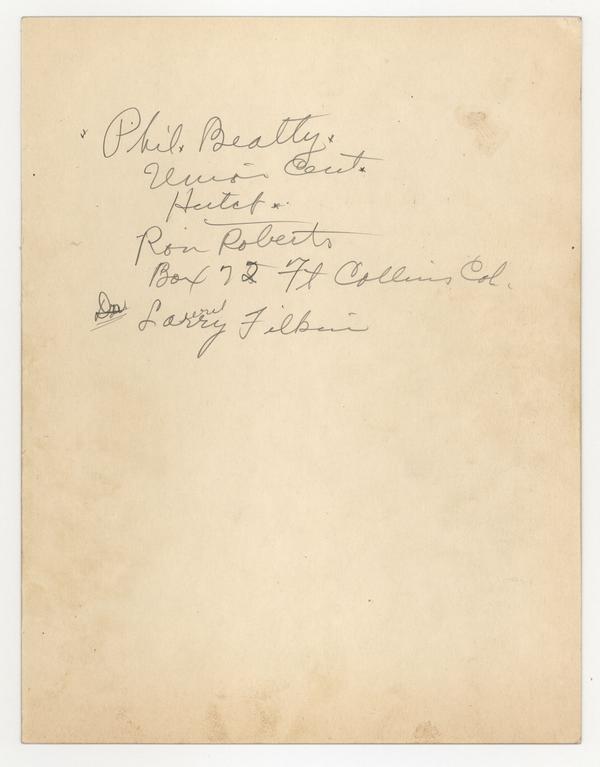 Phil. Beatty.
Union Cent.
Hutch.
Ron Roberts
Box 72 Ft Collins Col.
Larry Filkin